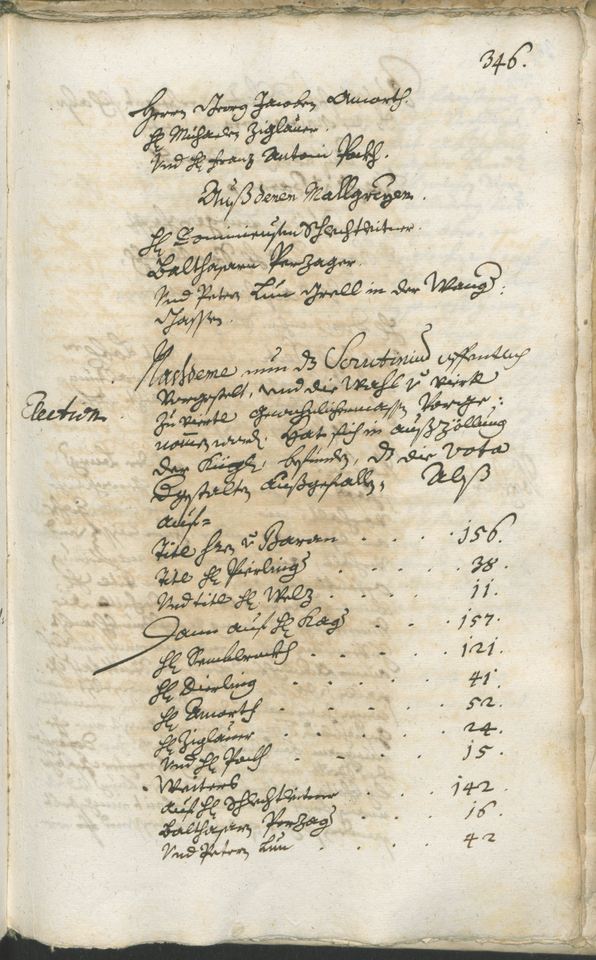 346.
Herrn Georg Jacoben Amorth.
H: Michaeln Ziglauer.
Und H: Franz Antoni Path.
Auß denen Mallgreyen.
H: Dominicusen Schlechtleitner.
Balthasarn Perzager.
Und Peter Lun Grell in der Wang:
Gassen.
Nachdeme nun dz Scrutinium offentlich
Vorgestelt, und die Wahl v: viertl
zu viertl gewohnlichermassen Vorge:
nomen word: hat sich in außzöllung
der Kügl, befunden, dz die vota
dgestalten außgefallen, Alß
Election
auf=
Titl Herrn v: Baran . . . 156.
Titl H: Pierling . . . 38.
Und titl H: Welz . . . 11.
Dann auf H: Kag . . . 157.
H: Semblrockh . . . 121.
H: Dierling . . . 41
H: Amorth . . . 52.
H: Ziglauer . . . 24.
Und H: Path . . . 15.
Weiters
auf H: Schlechtleitner . . . 142
Balthasarn Perzag . . . 16
Und Petern Lun . . . 42